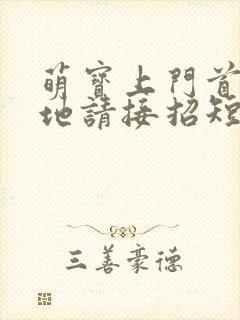 萌寶上門首
地請接招短
三善豪德